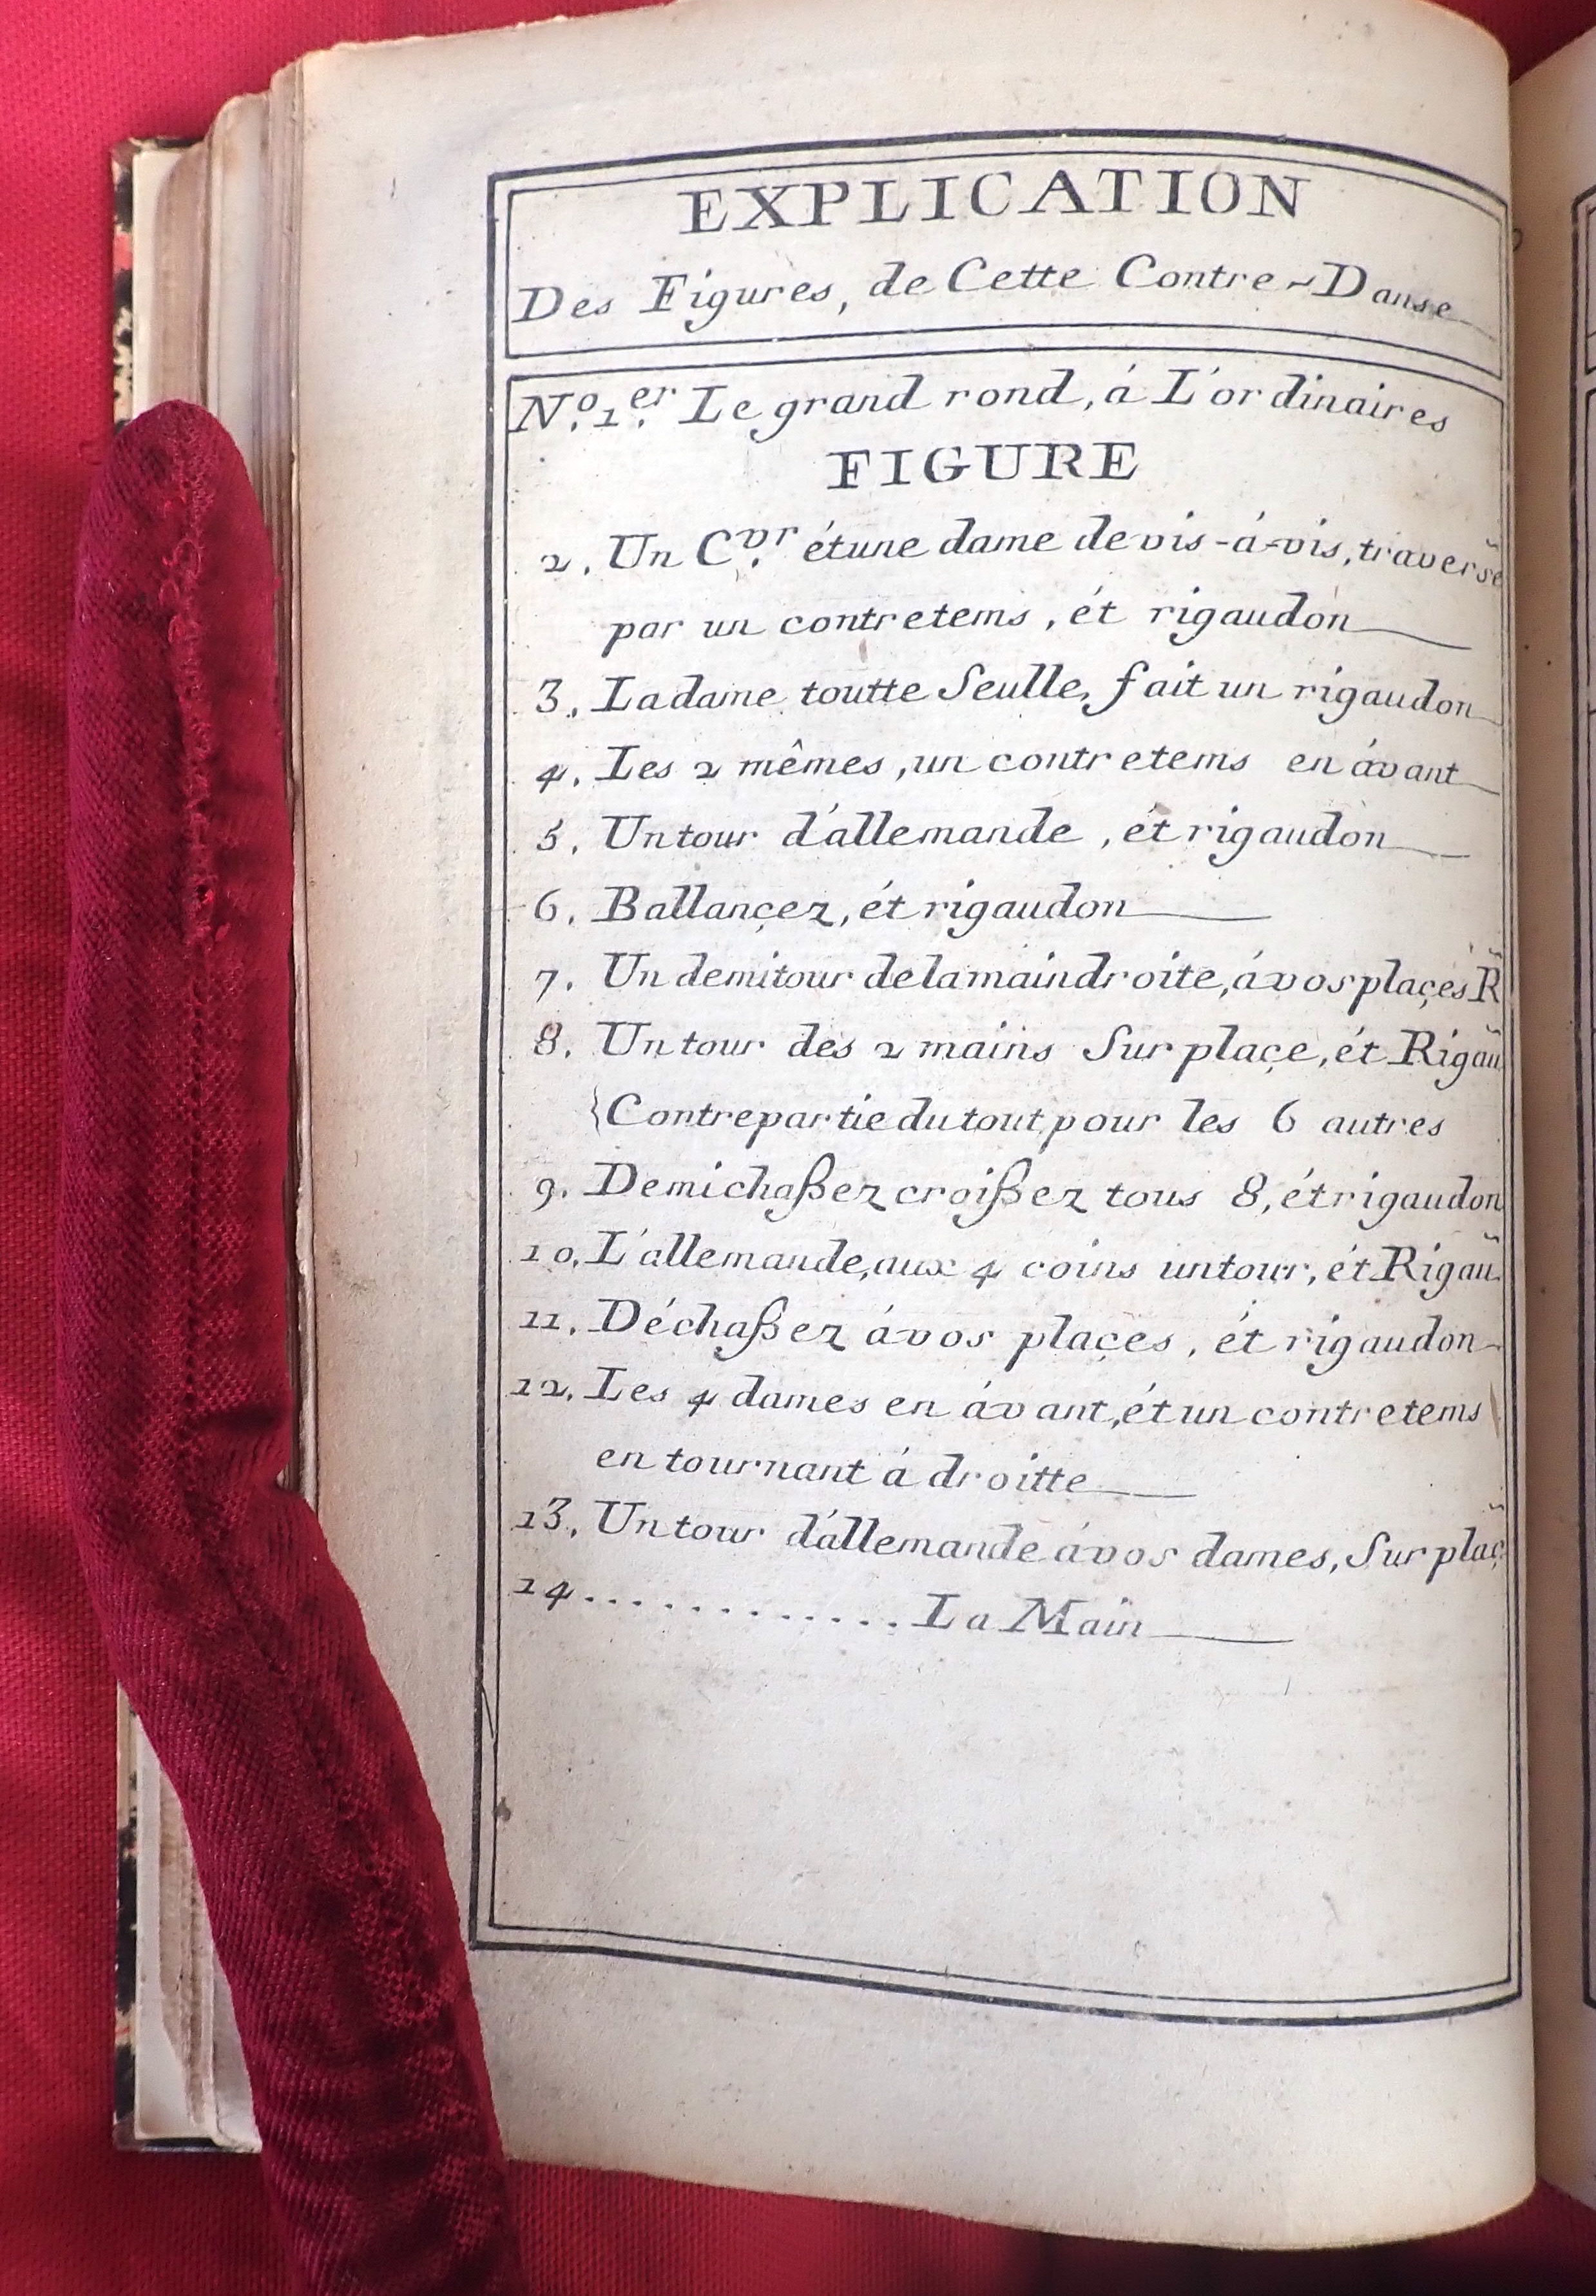 EXPLICATION
Des Figures, de Cette Contre-Danse
N.º 1.er Le grand rond, á L'ordinaires
FIGURE
2. Un C.vr ét une dame de vis-á-vis, traverse
par un contretems, ét rigaudon
3. La dame toutte Seulle, fait un rigaudon
4. Les 2 mêmes, un contretems en ávant
5. Un tour d'allemande, ét rigaudon
6. Ballançez, ét rigaudon
7. Un demi tour de la main droite, á vos plaçes R̃
8. Un tour des 2 mains Sur plaçe, ét Rigaũ
{Contrepartie du tout pour les 6 autres
9. Demi chaßez croißez tous 8, ét rigaudon
10. L'allemande, aux 4 coins un tour, ét Rigaũ
11. Déchaßez á vos plaçes, ét rigaudon
12. Les 4 dames en ávant, ét un contretems
en tournant á droitte
13. Un tour d'allemande á vos dames, Sur plaç̃
14 ............ La Main